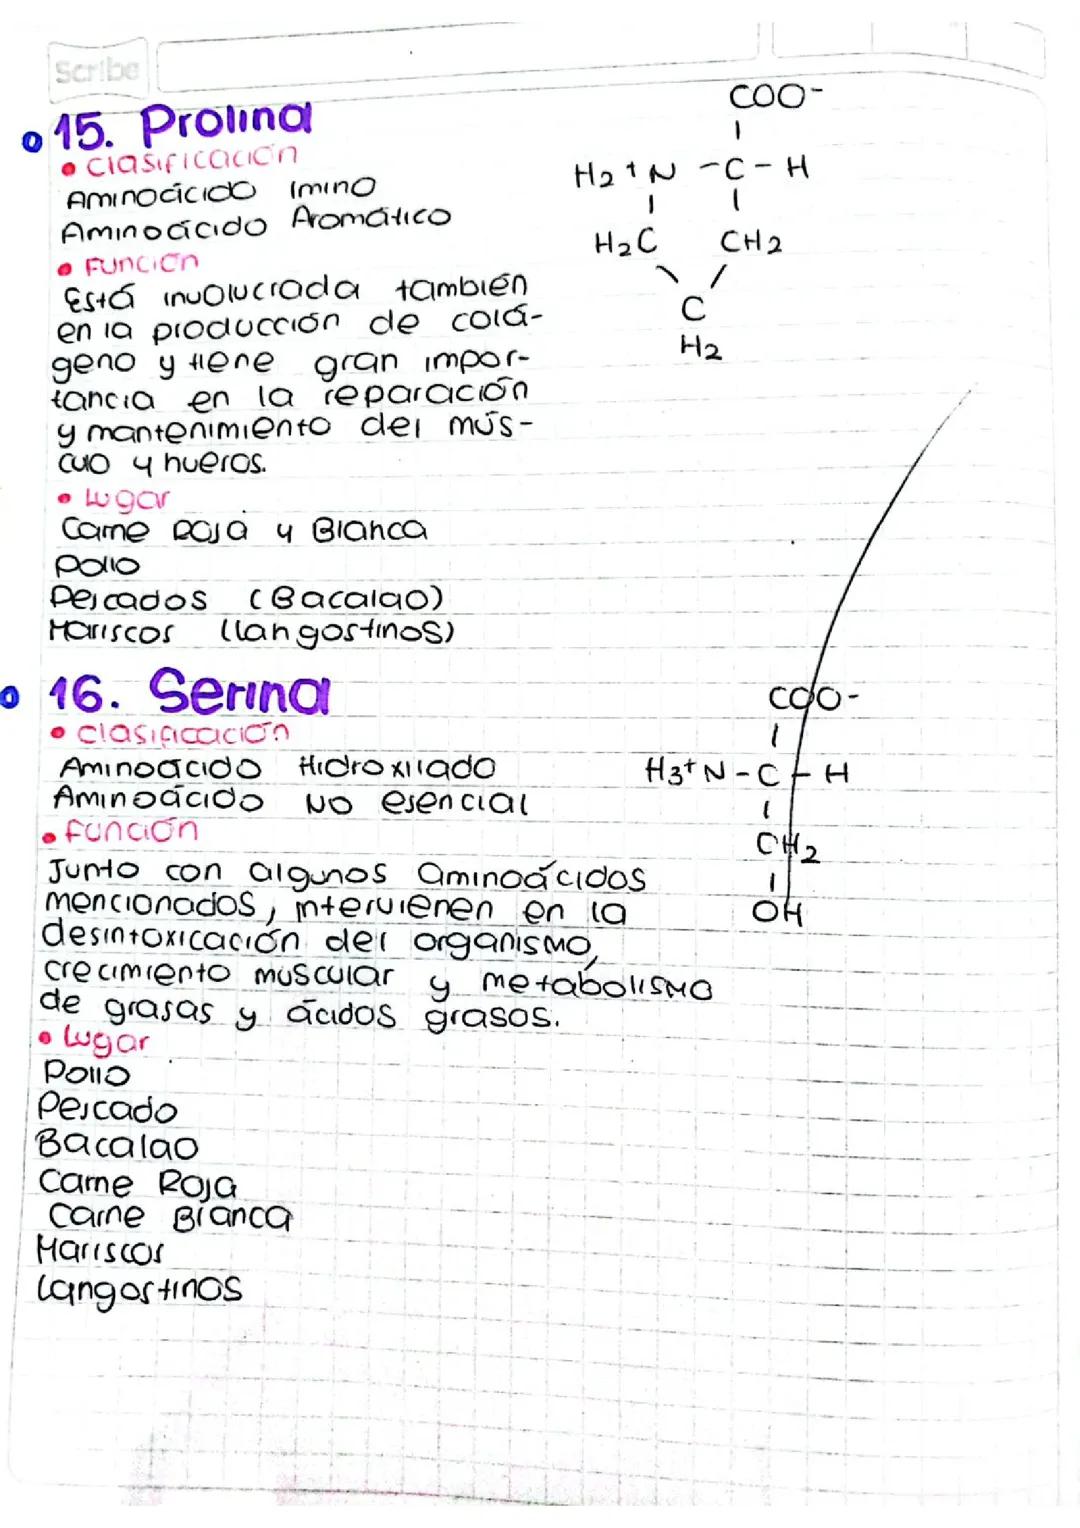 Scribe
15. Prolina
• Clasificación
Aminoácido Imino
Aminoácido Aromático
• Función
Está involucrada también
en la producción de colá-
geno y tiene gran impor-
tancia en la reparación
y mantenimiento del mús-
culo y huesos.
• Lugar
Carne Roja y Blanca
Pollo
Pescados (Bacalao)
Mariscos (langostinos)
COO-
H2+N - C - H
H2C CH2
C
H2
16. Serina
• Clasificación
Aminoácido Hidroxilado
Aminoácido No esencial
• Función
Junto con algunos aminoácidos
mencionados, intervienen en la
desintoxicación del organismo,
crecimiento muscular y metabolismo
de grasas y ácidos grasos.
• Lugar
Pollo
Pescado
Bacalao
Carne Roja
Carne Blanca
Mariscos
Langostinos
COO-
H3+N - C - H
CH2
OH